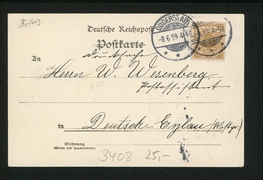 Deutsche Reichspost
Postkarte
Drucksache
An
Herrn W. Wesenberg
Postassistent
in
Deutsch Eylau (Westpr.)
Wohnung
3408 25,-